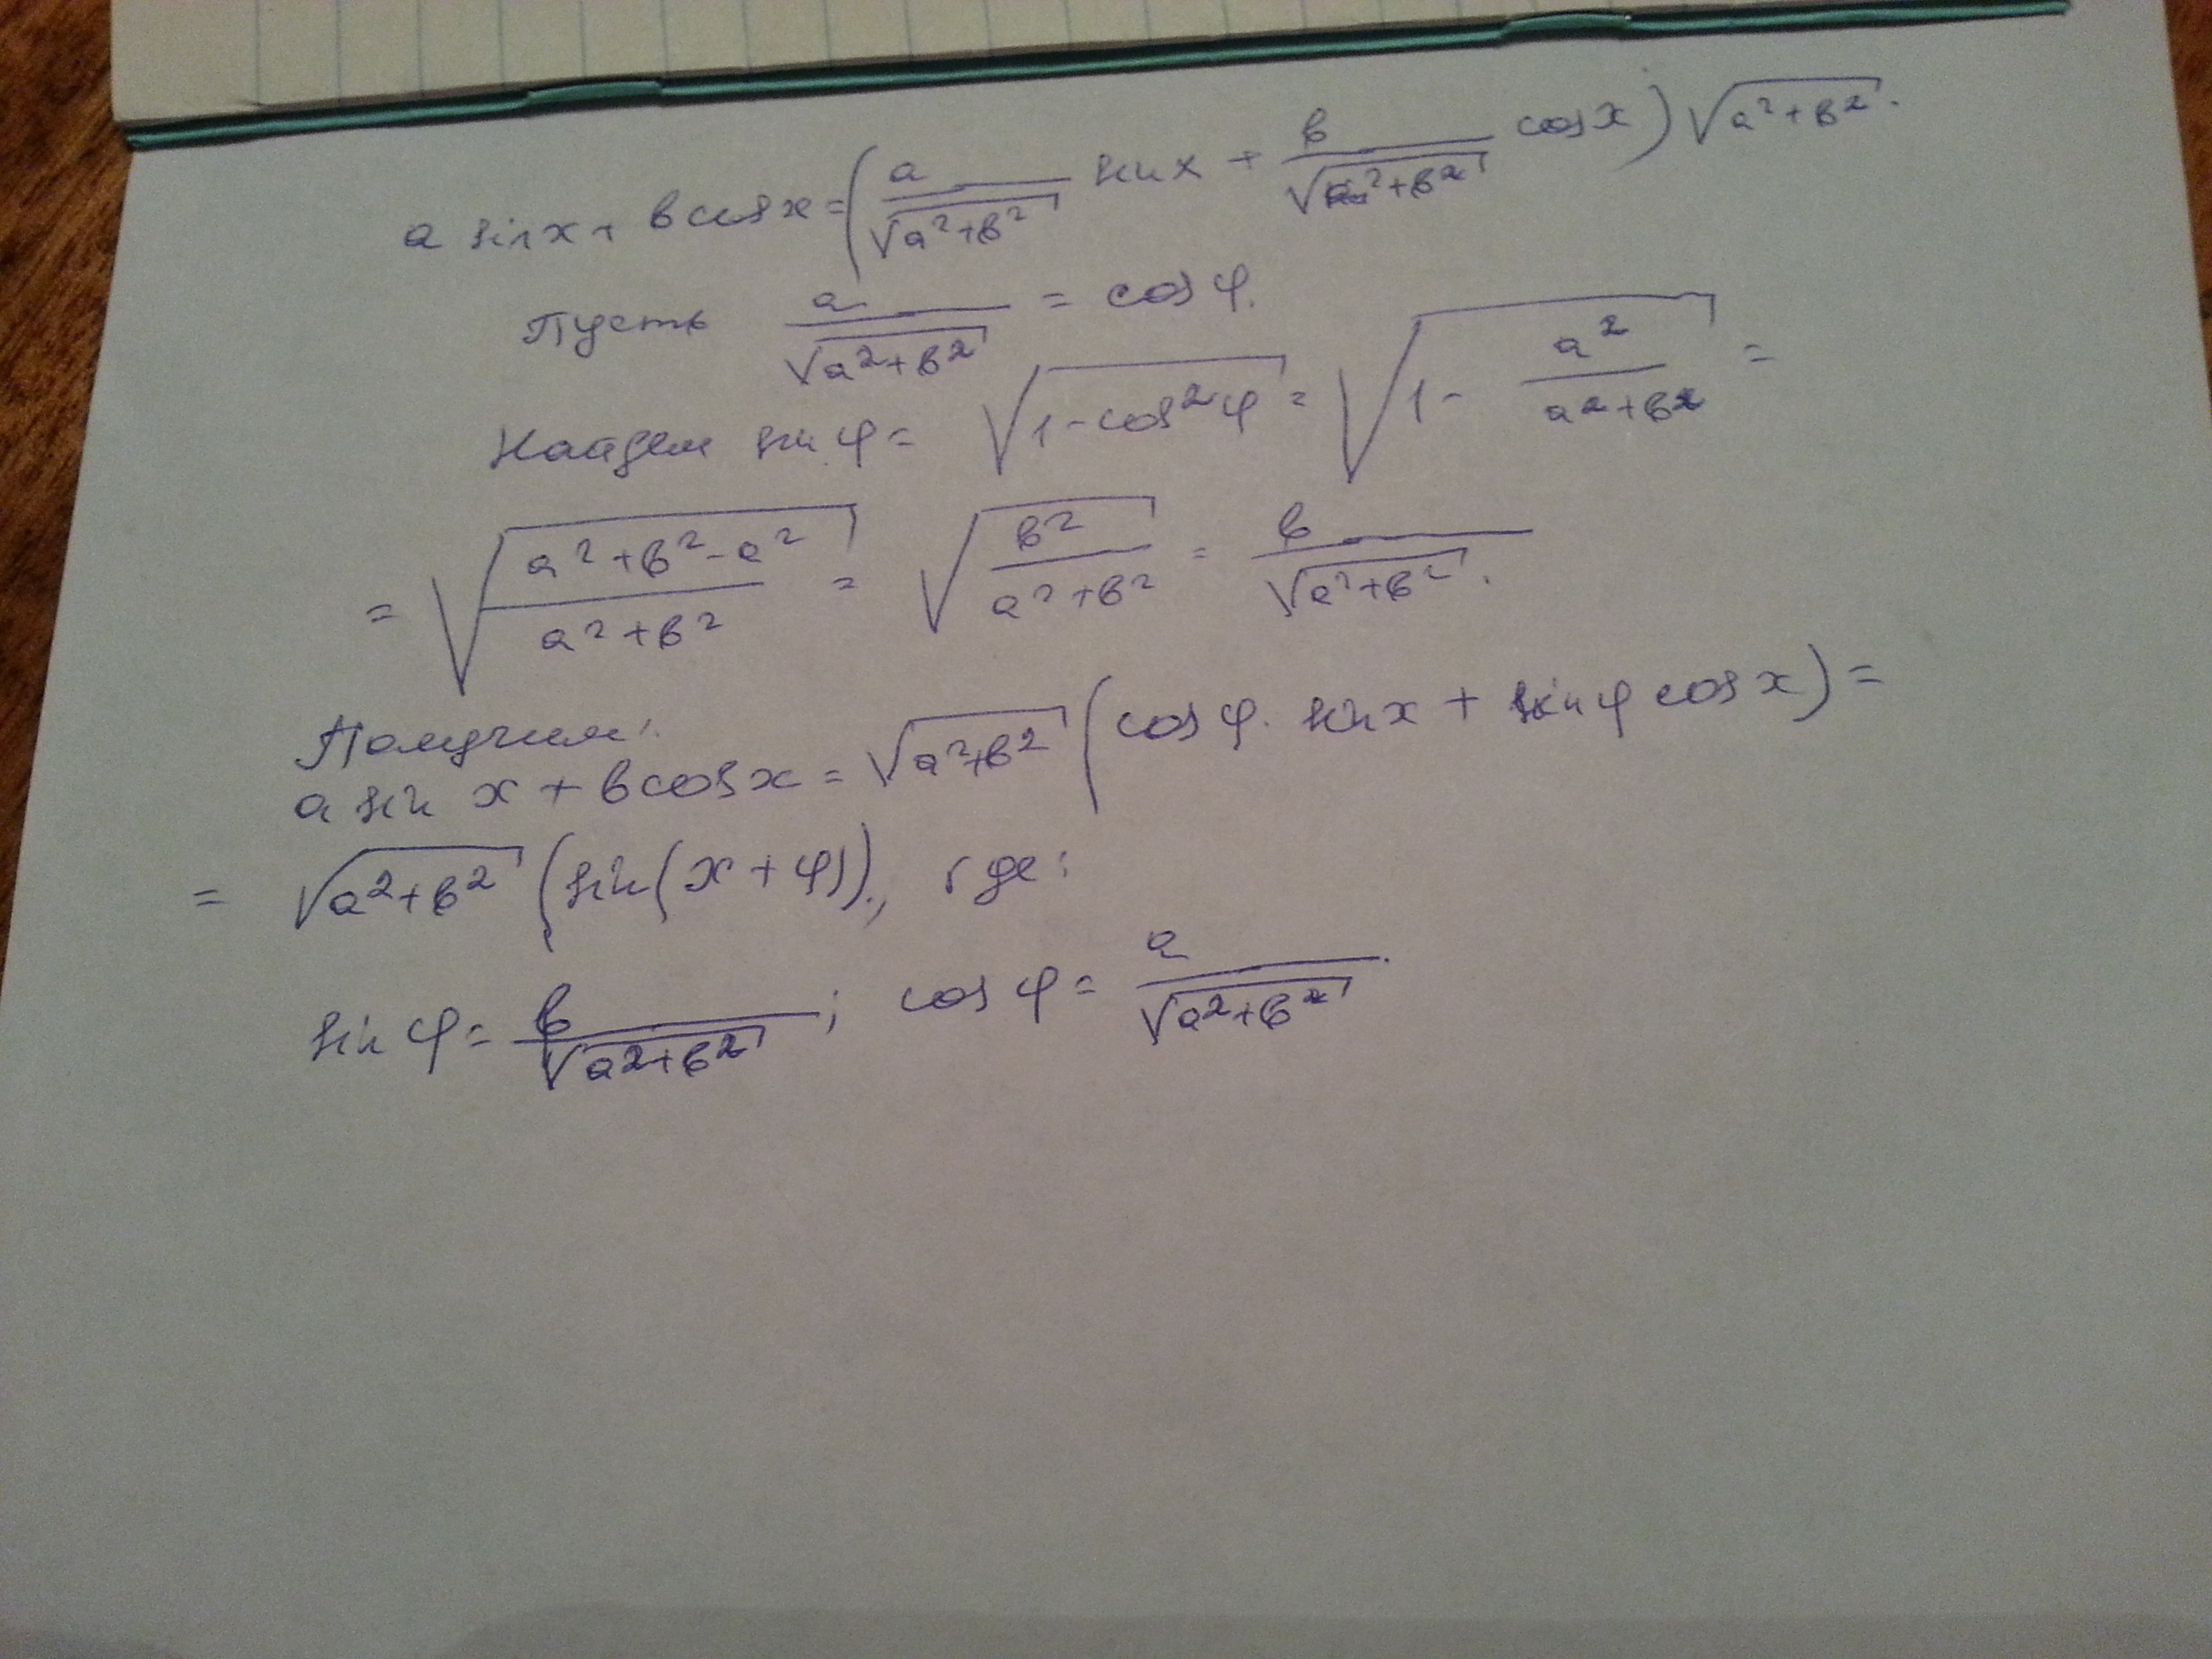 a sin x + b cos x = (a/√(a²+b²) sin x + b/√(a²+b²) cos x) √(a²+b²).
Пусть a/√(a²+b²) = cos φ.
Найдем sin φ = √(1-cos²φ) = √(1 - a²/(a²+b²)) =
= √((a²+b²-a²)/(a²+b²)) = √(b²/(a²+b²)) = b/√(a²+b²).
Получим:
a sin x + b cos x = √(a²+b²) (cos φ · sin x + sin φ cos x) =
= √(a²+b²) (sin(x + φ)), где:
sin φ = b/√(a²+b²); cos φ = a/√(a²+b²).